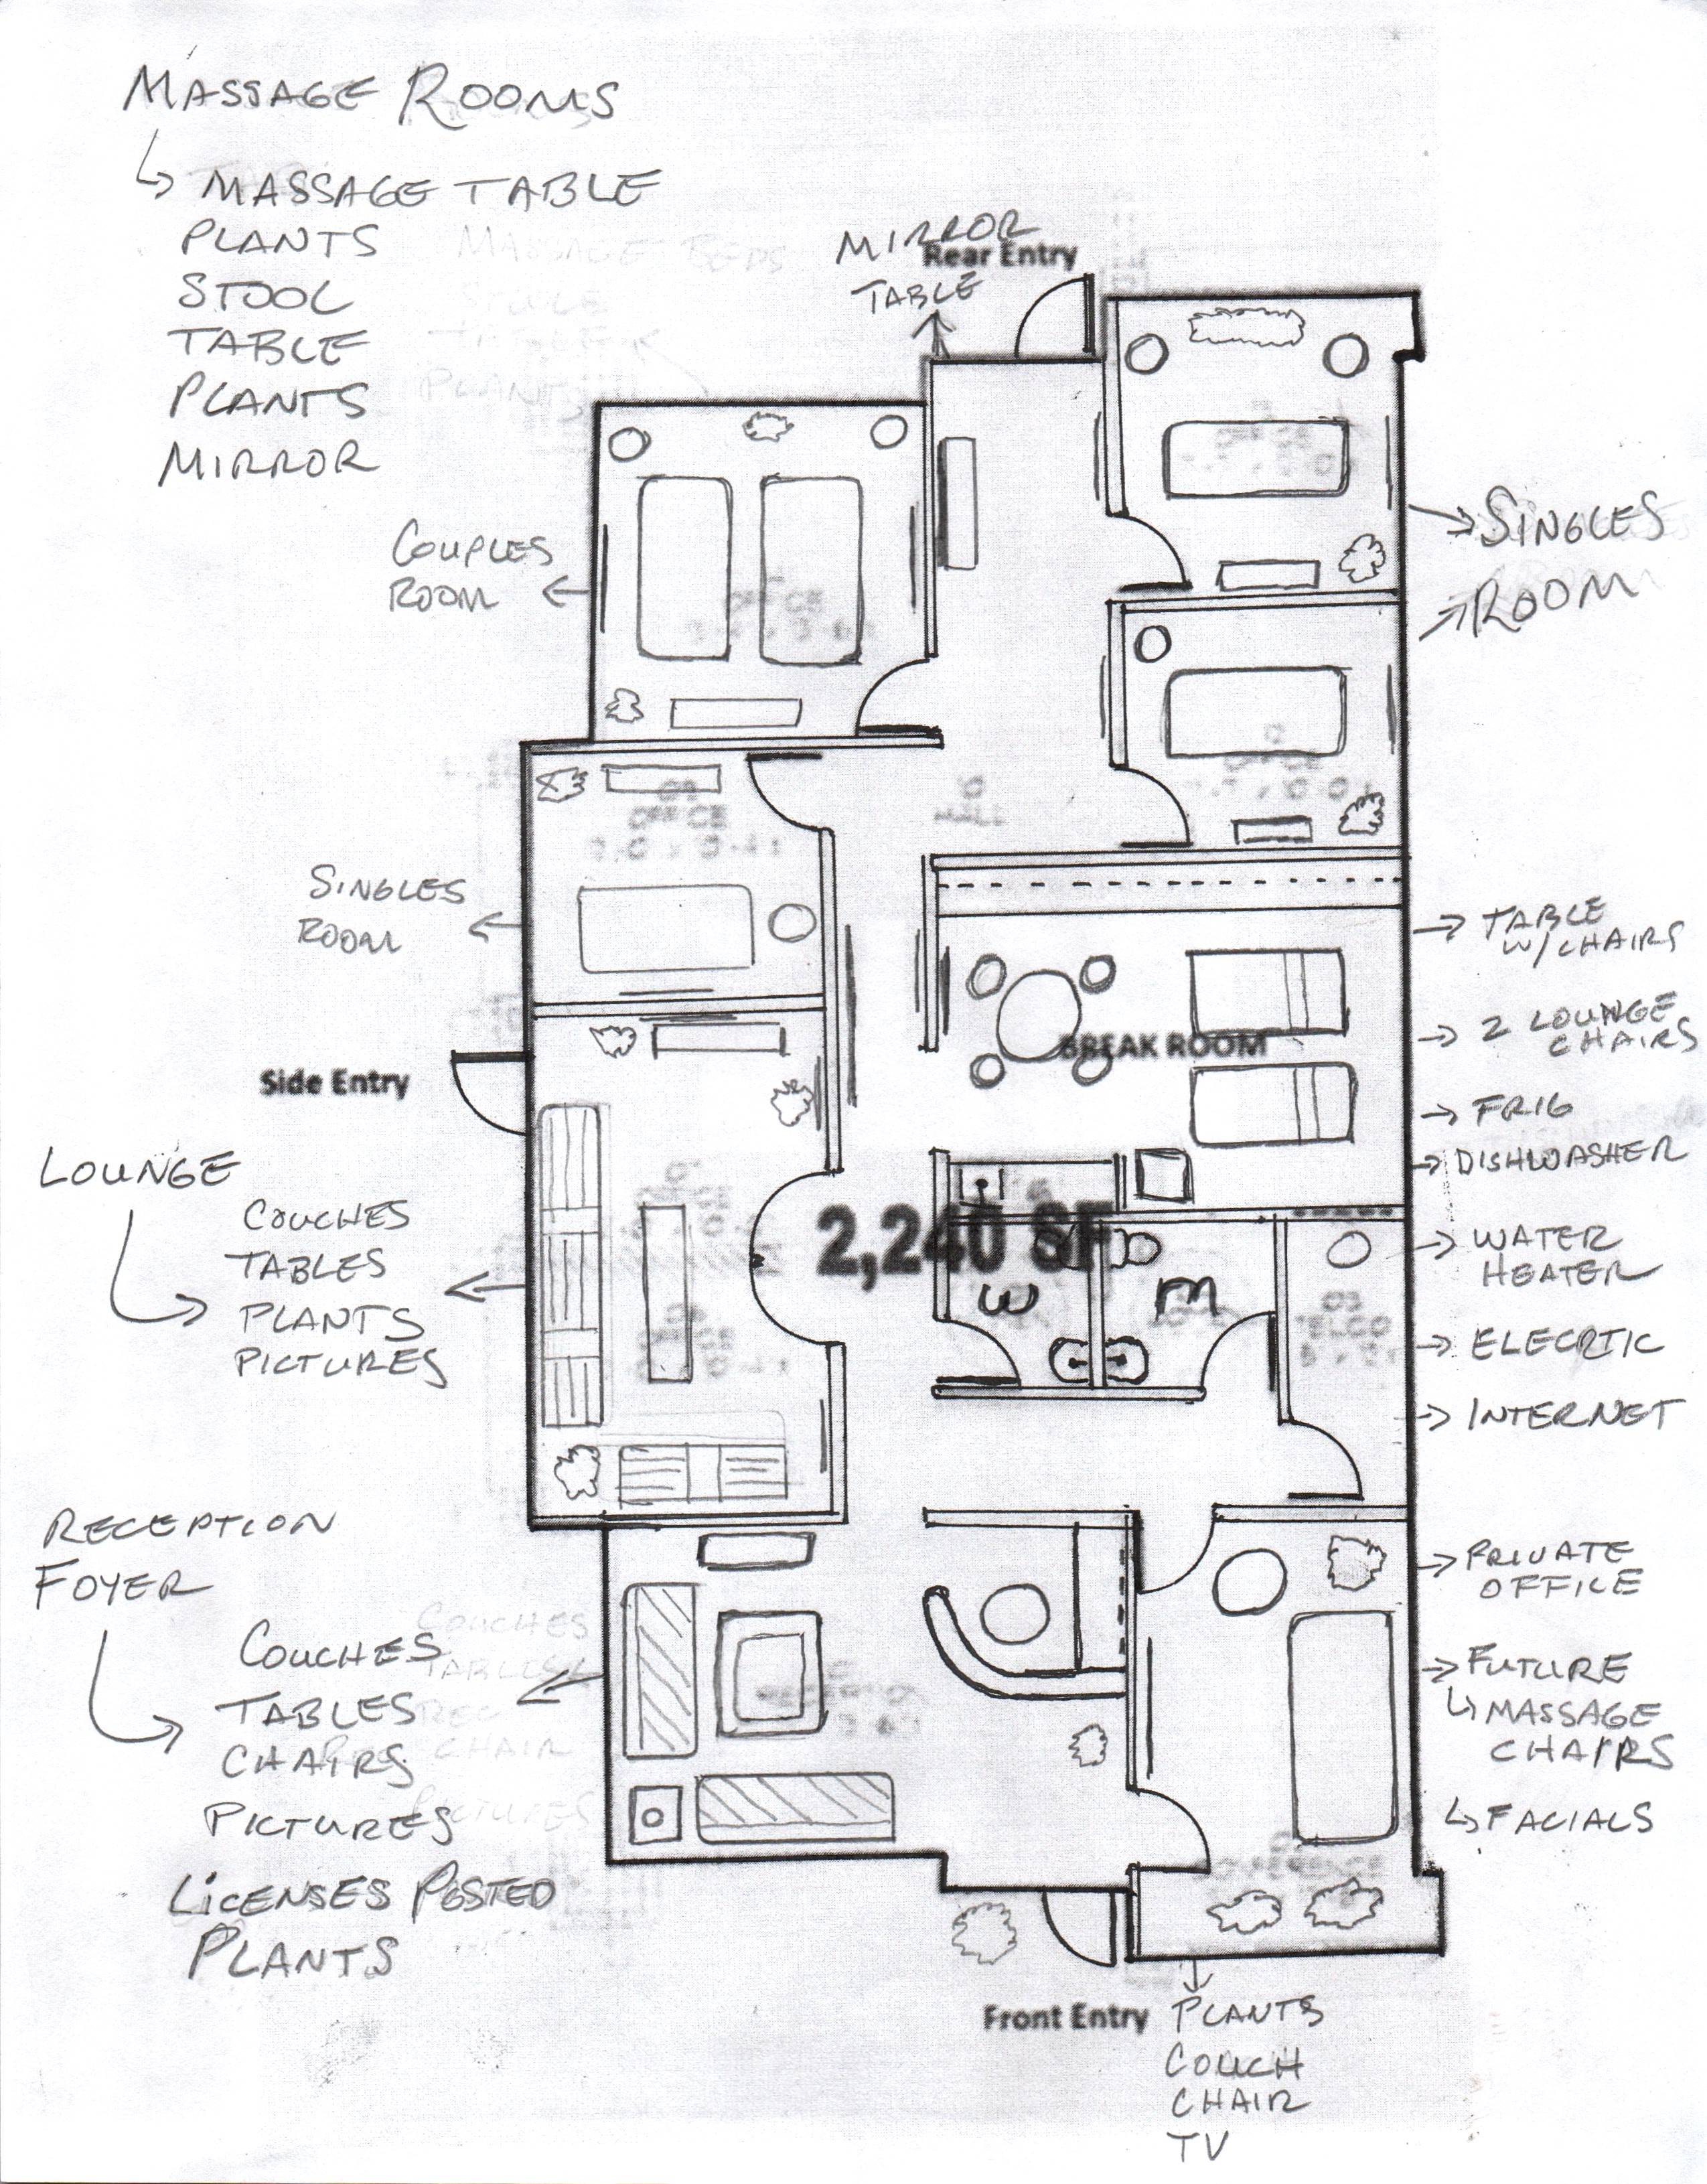 MASSAGE ROOMS
MASSAGE TABLE
PLANTS
STOOL
TABLE
PLANTS
MIRROR
MASSAGE BEDS
PLANTS
MIRROR
Rear Entry
TABLE
COUPLES
ROOM
SINGLES
ROOM
SINGLES
ROOM
Side Entry
LOUNGE
COUCHES
TABLES
PLANTS
PICTURES
RECEPTION
FOYER
COUCHES
TABLES
CHAIRS
PICTURES
LICENSES POSTED
PLANTS
COUCHES
TABLES
CHAIR
PICTURES
BREAK ROOM
2,240 SF
W
M
TABLE
W/CHAIRS
2 LOUNGE
CHAIRS
FRIG
DISHWASHER
WATER
HEATER
ELECRTIC
INTERNET
PRIVATE
OFFICE
FUTURE
MASSAGE
CHAIRS
FACIALS
Front Entry
PLANTS
COUCH
CHAIR
TV